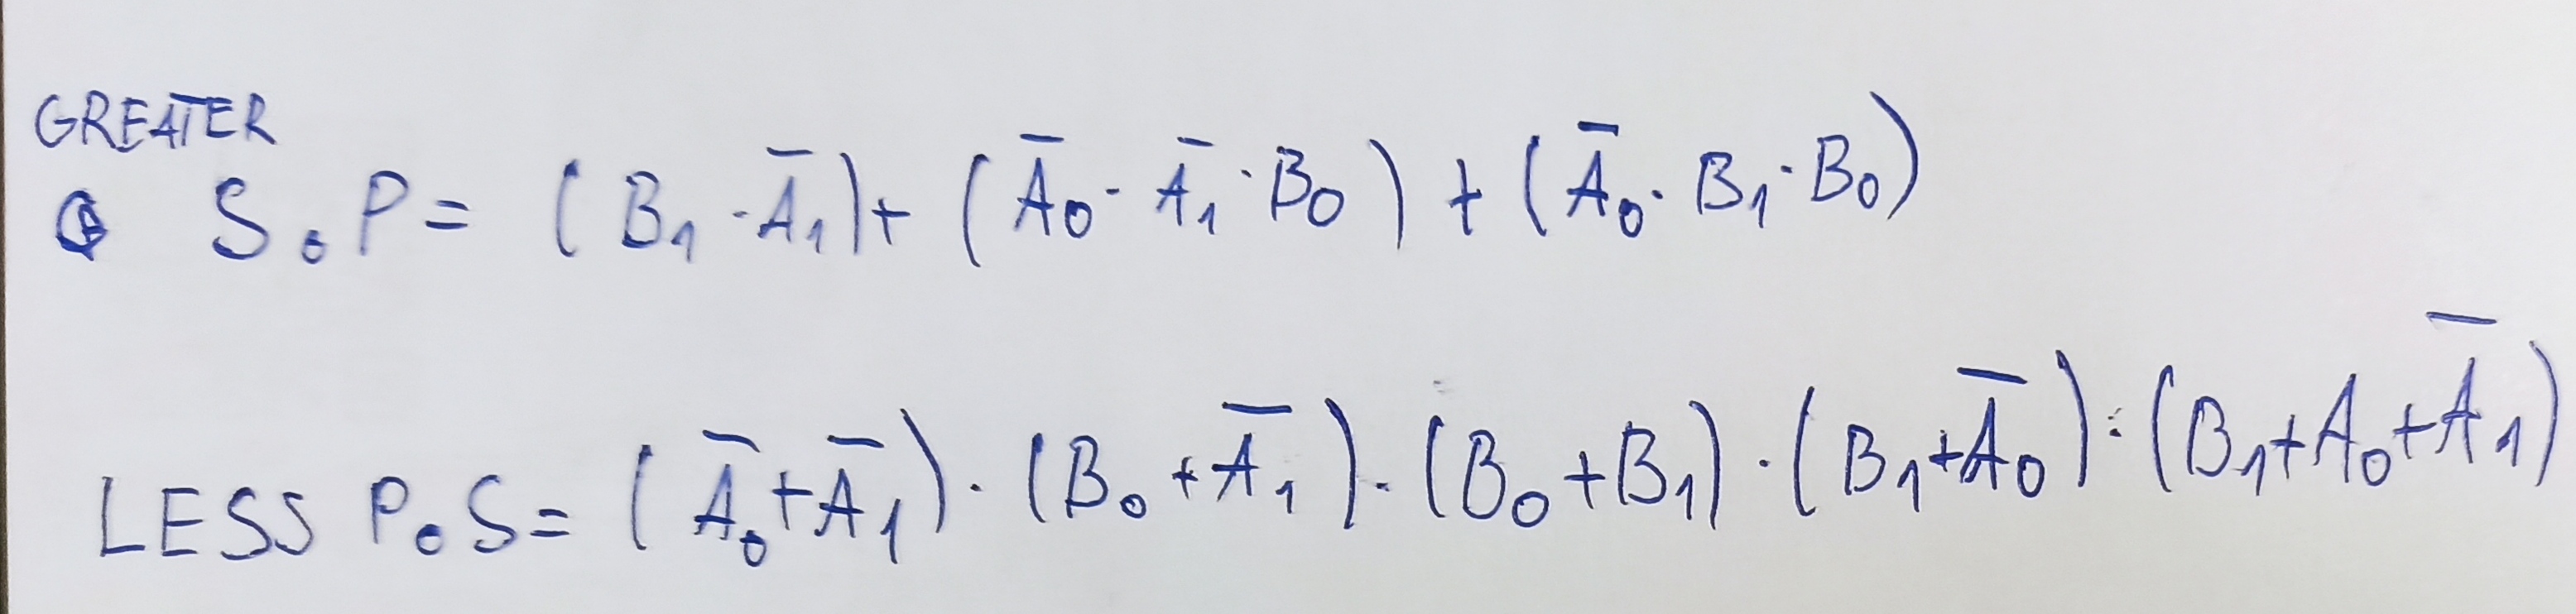 GREATER
SoP = (B₁·A̅₁) + (A̅₀·A̅₁·B₀) + (A̅₀·B₁·B₀)
LESS PoS = (A̅₀+A̅₁)·(B₀+A̅₁)·(B₀+B₁)·(B₁+A̅₀)·(B₁+A₀+A̅₁)